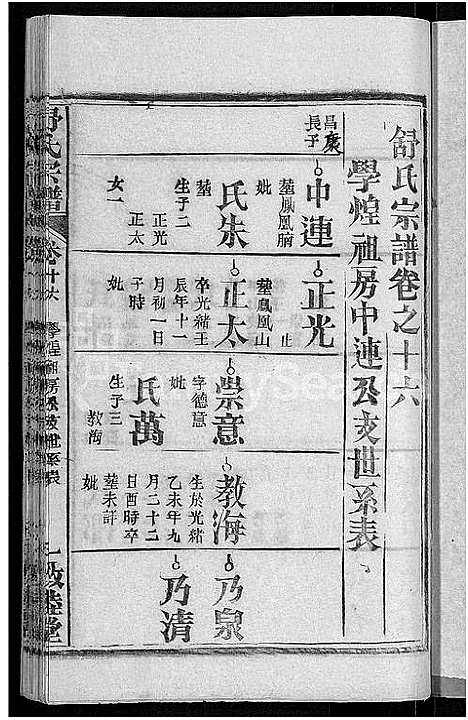 舒氏宗譜卷之十六
學煌祖房中連公支世系表
昌康
長子
中連
塋鳳凰腦
妣
氏朱
塋
生子二
正光
正太
女一
正光
止
塋鳳凰山
正太
卒光緒壬
辰年十一
月初一日
子時
妣
崇意
字德意
妣
氏萬
生子三
教海
教海
生於光緒
乙未年九
月二十二
日酉時卒
塋未詳
妣
乃泉
乃清
舒氏宗譜
卷十六
學煌祖房公支世系表
一
睦堂